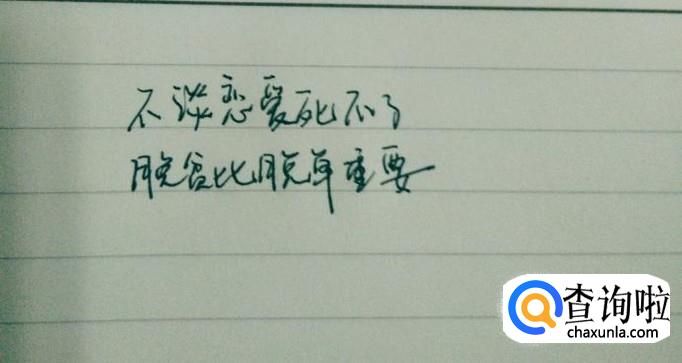 不谈恋爱死不了
脱贫比脱单重要
查询啦
chaxunla.com